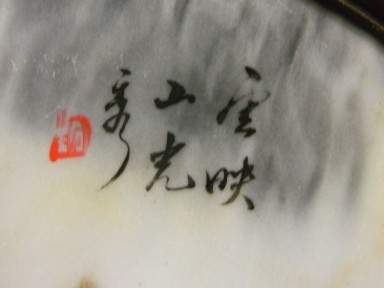 雲映
山光
秀